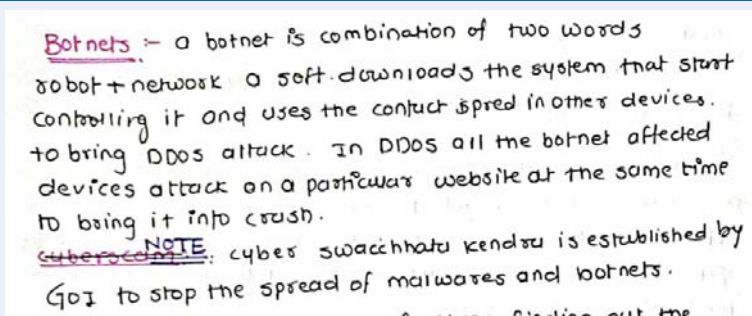 Botnets :- a botnet is combination of two words
robot + network a soft.downloads the system that start
controlling it and uses the contuct spred in other devices.
to bring DDOS attack. In DDOS all the botnet affected
devices attack on a particular website at the same time
to bring it into crush.
NOTE: cyber swacchhata kendra is established by
GOI to stop the spread of malwares and botnets.
finding out the